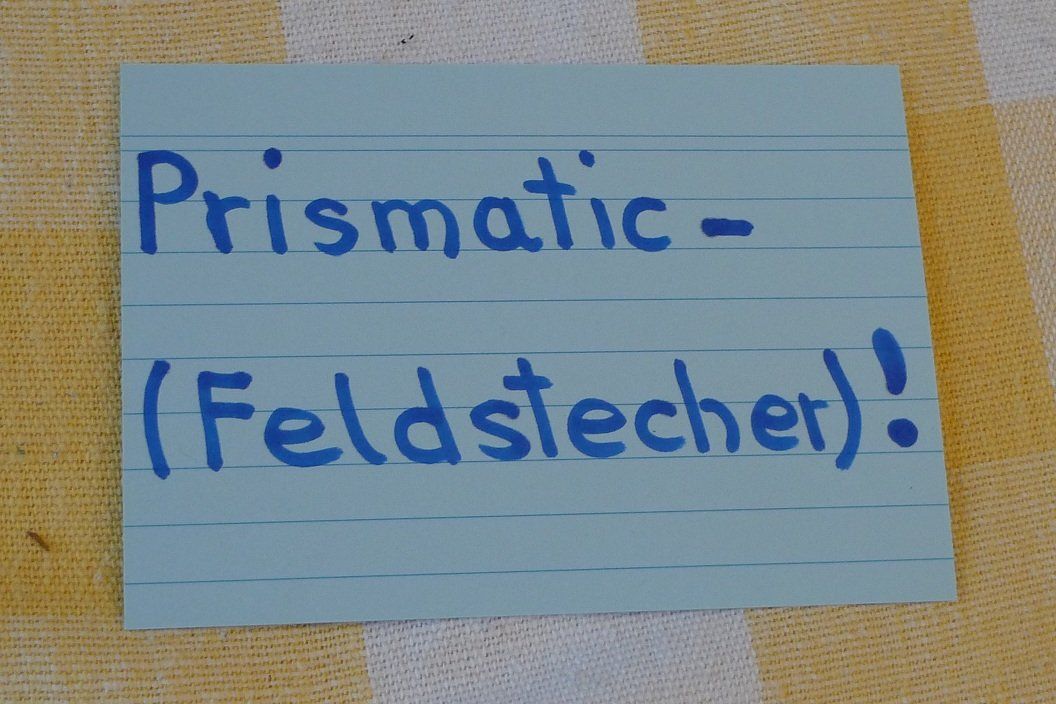 Prismatic -
(Feldstecher)!